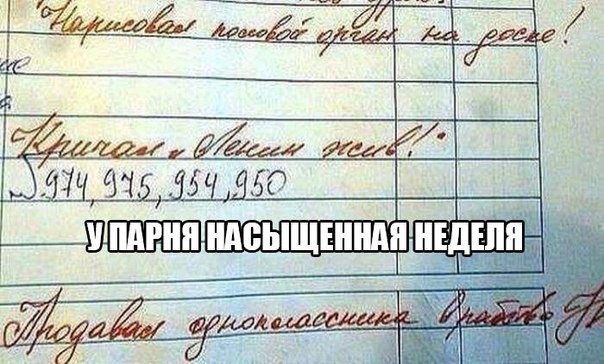 Нарисовал половой орган на доске!
Кричал „Ленин жив!“
974, 975, 954, 950
У ПАРНЯ НАСЫЩЕННАЯ НЕДЕЛЯ
Продавал одноклассника в рабство